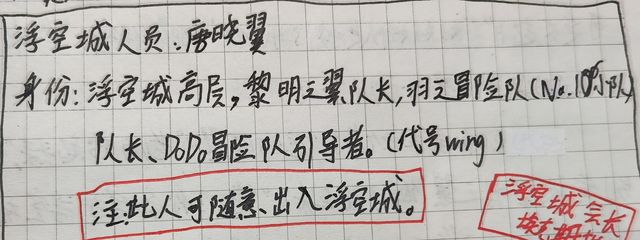 浮空城人员:唐晓翼
身份:浮空城高层,黎明之翼队长,羽之冒险队(No.10小队)
队长、DoDo冒险队引导者。(代号wing)
注:此人可随意出入浮空城。
浮空城会长